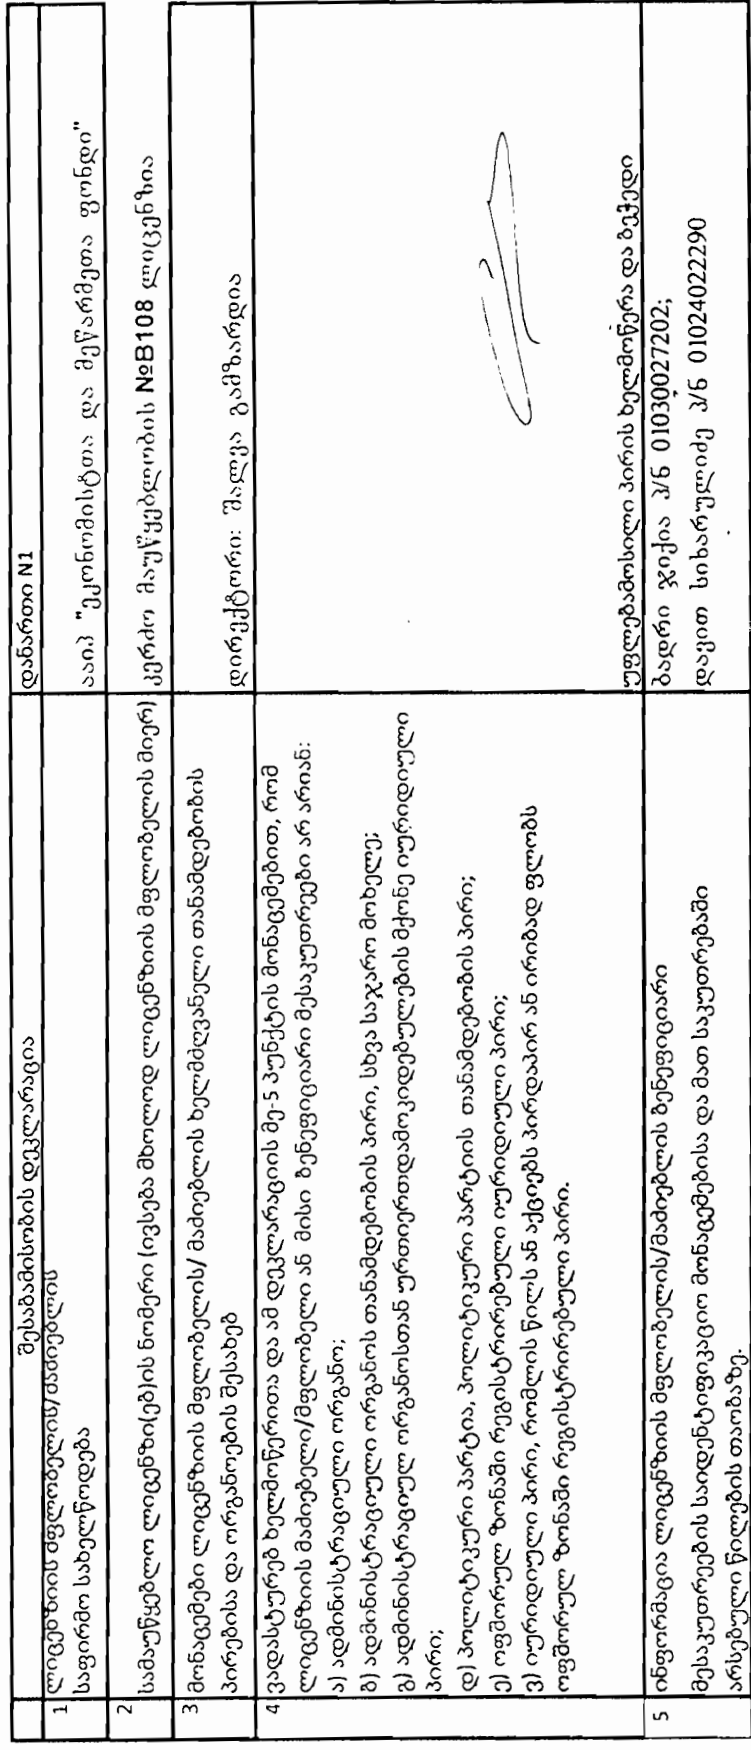 შესაბამისობის დეკლარაცია
დანართი N1
1
ლიცენზიის მფლობელის/მაძიებლის
საფირმო სახელწოდება
ააიპ "ეკონომისტთა და მეწარმეთა ფონდი"
2
სამაუწყებლო ლიცენზი(ებ)ის ნომერი (ივსება მხოლოდ ლიცენზიის მფლობელის მიერ)
კერძო მაუწყებლობის №B108 ლიცენზია
3
მონაცემები ლიცენზიის მფლობელის/ მაძიებლის ხელმძღვანელი თანამდებობის
პირებისა და ორგანოების შესახებ
დირექტორი: შალვა გამზარდია
4
ვადასტურებ ხელმოწერითა და ამ დეკლარაციის მე-5 პუნქტის მონაცემებით, რომ
ლიცენზიის მაძიებელი/მფლობელი ან მისი ბენეფიციარი მესაკუთრეები არ არიან:
ა) ადმინისტრაციული ორგანო;
ბ) ადმინისტრაციული ორგანოს თანამდებობის პირი, სხვა საჯარო მოხელე;
გ) ადმინისტრაციულ ორგანოსთან ურთიერთდამოკიდებულების მქონე იურიდიული
პირი;
დ) პოლიტიკური პარტია, პოლიტიკური პარტიის თანამდებობის პირი;
ე) ოფშორულ ზონაში რეგისტრირებული იურიდიული პირი;
ვ) იურიდიული პირი, რომლის წილს ან აქციებს პირდაპირ ან ირიბად ფლობს
ოფშორულ ზონაში რეგისტრირებული პირი.
უფლებამოსილი პირის ხელმოწერა და ბეჭედი
5
ინფორმაცია ლიცენზიის მფლობელის/მაძიებლის ბენეფიციარი
მესაკუთრეების საიდენტიფიკაციო მონაცემებისა და მათ საკუთრებაში
არსებული წილების თაობაზე.
ბადრი ჯიქია პ/ნ 01030027202;
დავით სიხარულიძე პ/ნ 01024022290